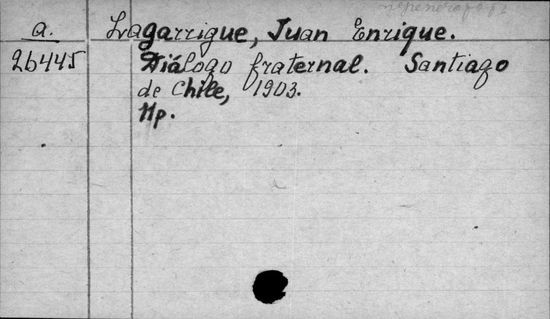 a.
Lagarrigue, Juan Enrique.
26445
Diálogo fraternal. Santiago
de Chile, 1903.
11p.